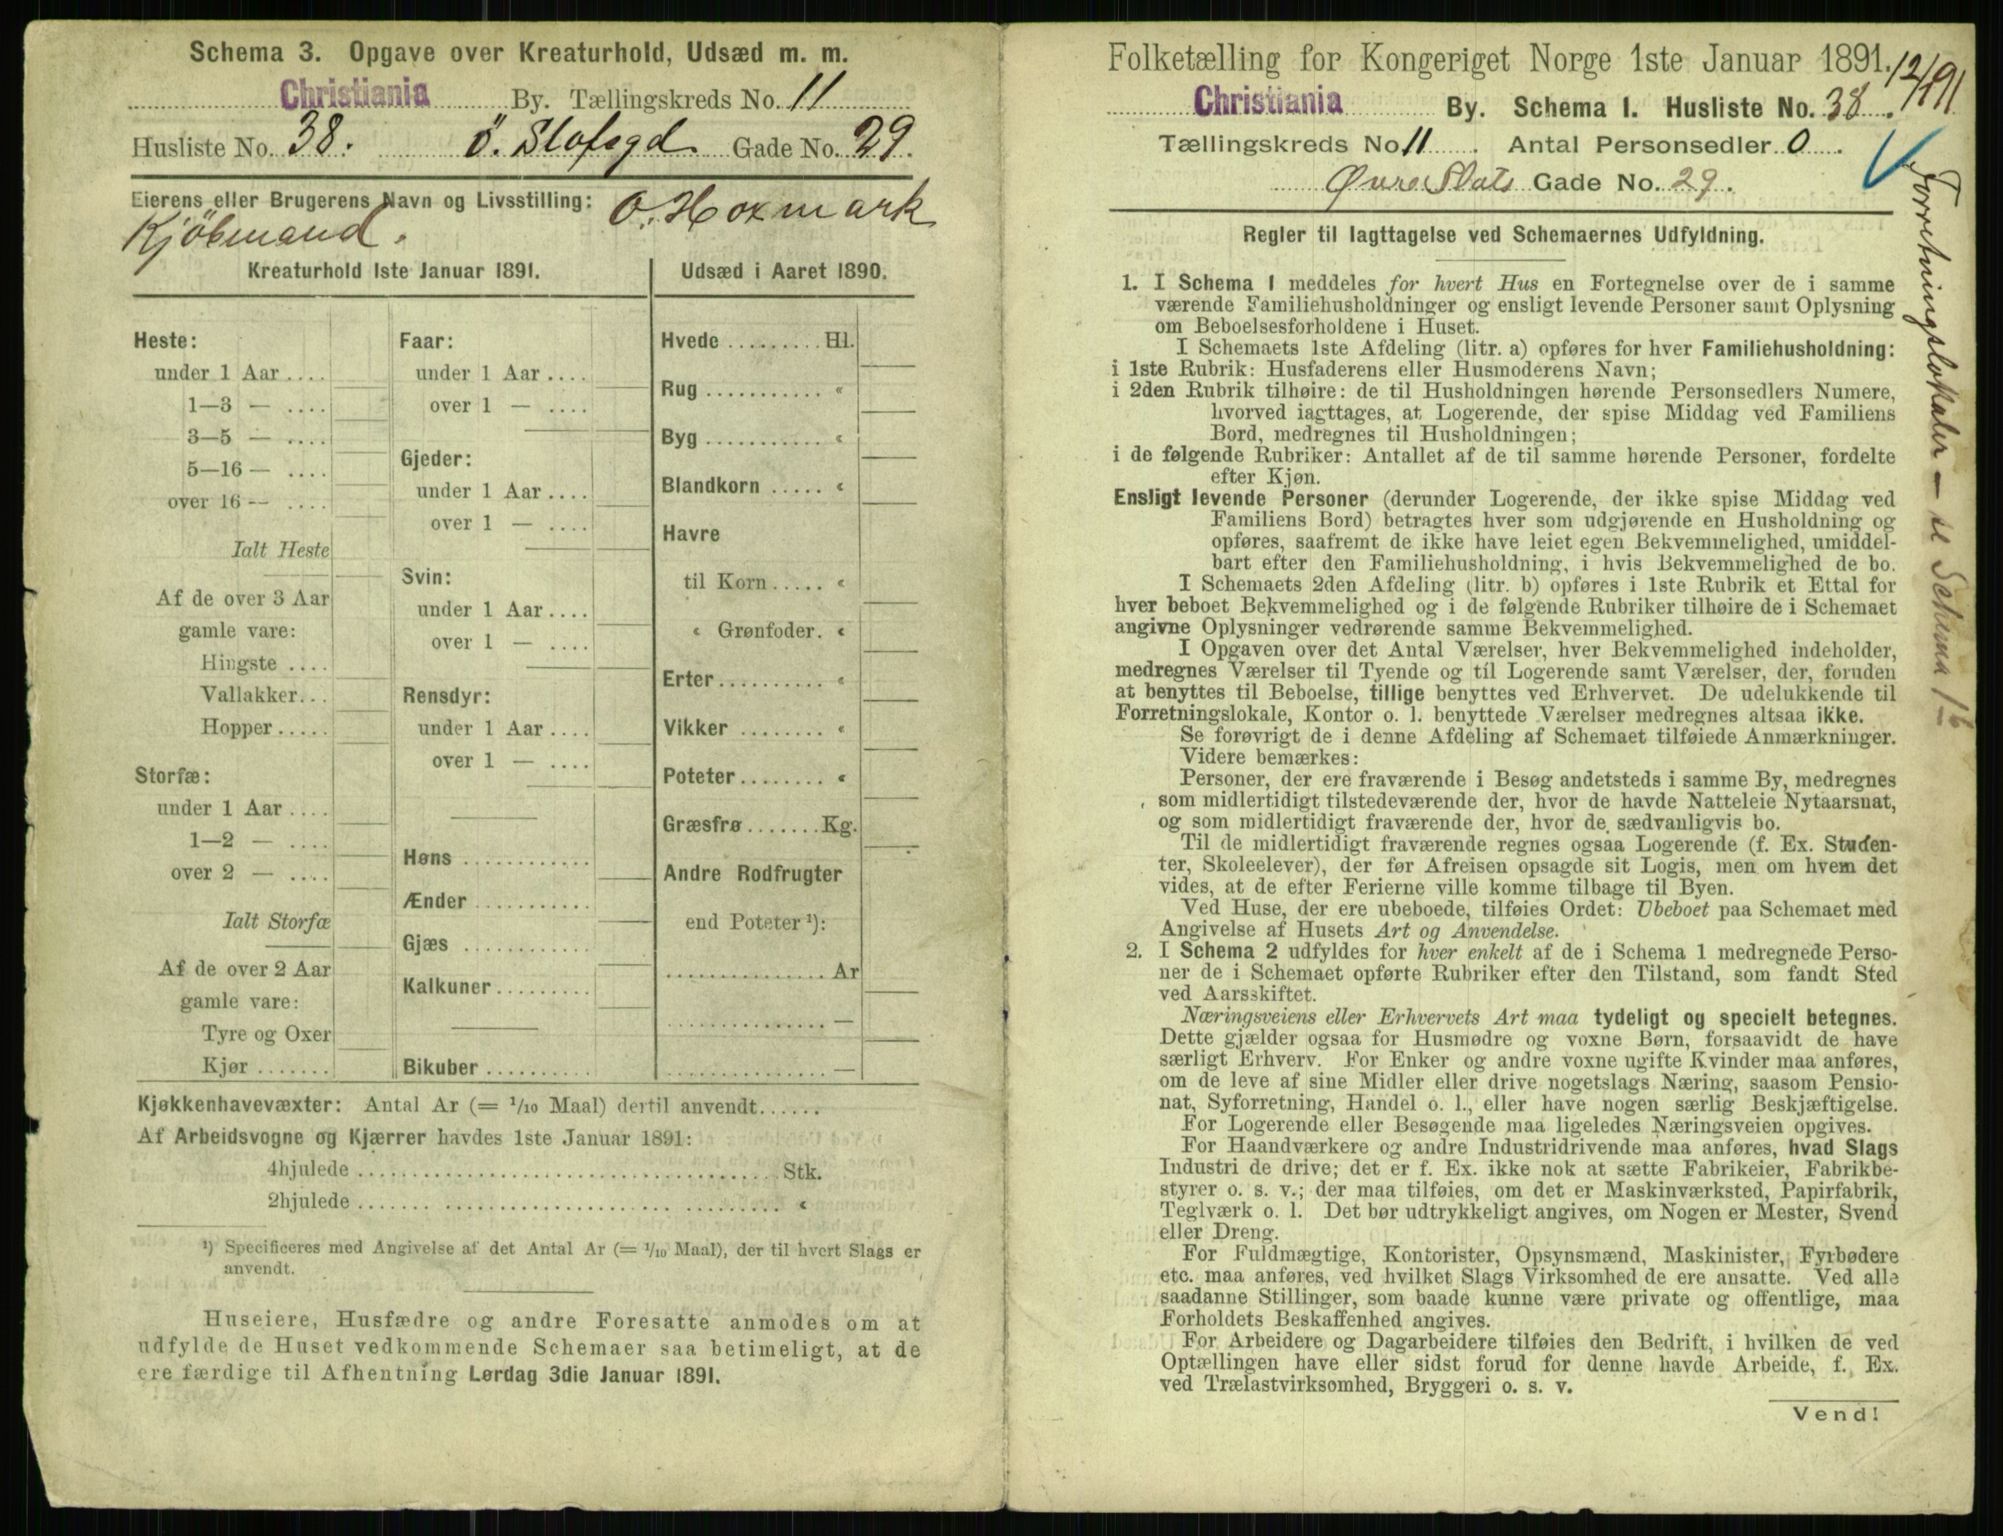 Schema 3. Opgave over Kreaturhold, Udsæd m. m.
Christiania By. Tællingskreds No. 11
Husliste No. 38. Ö. Slotsgd Gade No. 29.
Eierens eller Brugerens Navn og Livsstilling: O. Hoxmark
Kjöbmand.
Kreaturhold 1ste Januar 1891.
Heste:
under 1 Aar ....
1—3 — ....
3—5 — ....
5—16 — ....
over 16 — ....
Ialt Heste
Af de over 3 Aar
gamle vare:
Hingste ....
Vallakker...
Hopper.....
Storfæ:
under 1 Aar ....
1—2 — ....
over 2 — ....
Ialt Storfæ
Af de over 2 Aar
gamle vare:
Tyre og Oxer
Kjør .......
Faar:
under 1 Aar ....
over 1 — ....
Gjeder:
under 1 Aar ....
over 1 — ....
Svin:
under 1 Aar ....
over 1 — ....
Rensdyr:
under 1 Aar ....
over 1 — ....
Høns ............
Ænder ...........
Gjæs ............
Kalkuner.........
Bikuber ..........
Udsæd i Aaret 1890.
Hvede ......... Hl.
Rug ........... «
Byg ........... «
Blandkorn ..... «
Havre
til Korn ..... «
« Grønfoder. «
Erter.......... «
Vikker ........ «
Poteter........ «
Græsfrø....... Kg.
Andre Rodfrugter
end Poteter ¹):
............... Ar
............... —
............... —
Kjøkkenhavevæxter: Antal Ar (= 1/10 Maal) dertil anvendt......
Af Arbeidsvogne og Kjærrer havdes 1ste Januar 1891:
4hjulede ........................................ Stk.
2hjulede ........................................ «
¹) Specificeres med Angivelse af det Antal Ar (= 1/10 Maal), der til hvert Slags er
anvendt.
Huseiere, Husfædre og andre Foresatte anmodes om at
udfylde de Huset vedkommende Schemaer saa betimeligt, at de
ere færdige til Afhentning Lørdag 3die Januar 1891.
Folketælling for Kongeriget Norge 1ste Januar 1891.
12/1 91
Christiania By. Schema 1. Husliste No. 38.
Tællingskreds No 11. Antal Personsedler 0.
Øvre Slots Gade No. 29.
Regler til Iagttagelse ved Schemaernes Udfyldning.
1. I Schema 1 meddeles for hvert Hus en Fortegnelse over de i samme
værende Familiehusholdninger og ensligt levende Personer samt Oplysning
om Beboelsesforholdene i Huset.
I Schemaets 1ste Afdeling (litr. a) opføres for hver Familiehusholdning:
i 1ste Rubrik: Husfaderens eller Husmoderens Navn;
i 2den Rubrik tilhøire: de til Husholdningen hørende Personsedlers Numere,
hvorved iagttages, at Logerende, der spise Middag ved Familiens
Bord, medregnes til Husholdningen;
i de følgende Rubriker: Antallet af de til samme hørende Personer, fordelte
efter Kjøn.
Ensligt levende Personer (derunder Logerende, der ikke spise Middag ved
Familiens Bord) betragtes hver som udgjørende en Husholdning og
opføres, saafremt de ikke have leiet egen Bekvemmelighed, umiddel-
bart efter den Familiehusholdning, i hvis Bekvemmelighed de bo.
I Schemaets 2den Afdeling (litr. b) opføres i 1ste Rubrik et Ettal for
hver beboet Bekvemmelighed og i de følgende Rubriker tilhøire de i Schemaet
angivne Oplysninger vedrørende samme Bekvemmelighed.
I Opgaven over det Antal Værelser, hver Bekvemmelighed indeholder,
medregnes Værelser til Tyende og til Logerende samt Værelser, der, foruden
at benyttes til Beboelse, tillige benyttes ved Erhvervet. De udelukkende til
Forretningslokale, Kontor o. l. benyttede Værelser medregnes altsaa ikke.
Se forøvrigt de i denne Afdeling af Schemaet tilføiede Anmærkninger.
Videre bemærkes:
Personer, der ere fraværende i Besøg andetsteds i samme By, medregnes
som midlertidigt tilstedeværende der, hvor de havde Natteleie Nytaarsnat,
og som midlertidigt fraværende der, hvor de sædvanligvis bo.
Til de midlertidigt fraværende regnes ogsaa Logerende (f. Ex. Studen-
ter, Skoleelever), der før Afreisen opsagde sit Logis, men om hvem det
vides, at de efter Ferierne ville komme tilbage til Byen.
Ved Huse, der ere ubeboede, tilføies Ordet: Ubeboet paa Schemaet med
Angivelse af Husets Art og Anvendelse.
2. I Schema 2 udfyldes for hver enkelt af de i Schema 1 medregnede Perso-
ner de i Schemaet opførte Rubriker efter den Tilstand, som fandt Sted
ved Aarsskiftet.
Næringsveiens eller Erhvervets Art maa tydeligt og specielt betegnes.
Dette gjælder ogsaa for Husmødre og voxne Børn, forsaavidt de have
særligt Erhverv. For Enker og andre voxne ugifte Kvinder maa anføres,
om de leve af sine Midler eller drive nogetslags Næring, saasom Pensio-
nat, Syforretning, Handel o. l., eller have nogen særlig Beskjæftigelse.
For Logerende eller Besøgende maa ligeledes Næringsveien opgives.
For Haandværkere og andre Industridrivende maa anføres, hvad Slags
Industri de drive; det er f. Ex. ikke nok at sætte Fabrikeier, Fabrikbe-
styrer o. s. v.; der maa tilføies, om det er Maskinværksted, Papirfabrik,
Teglværk o. l. Det bør udtrykkeligt angives, om Nogen er Mester, Svend
eller Dreng.
For Fuldmægtige, Kontorister, Opsynsmænd, Maskinister, Fyrbødere
etc. maa anføres, ved hvilket Slags Virksomhed de ere ansatte. Ved alle
saadanne Stillinger, som baade kunne være private og offentlige, maa
Forholdets Beskaffenhed angives.
For Arbeidere og Dagarbeidere tilføies den Bedrift, i hvilken de ved
Optællingen have eller sidst forud for denne havde Arbeide, f. Ex.
ved Trælastvirksomhed, Bryggeri o. s. v.
Vend!
Forretningslokaler — se Schema 1 b